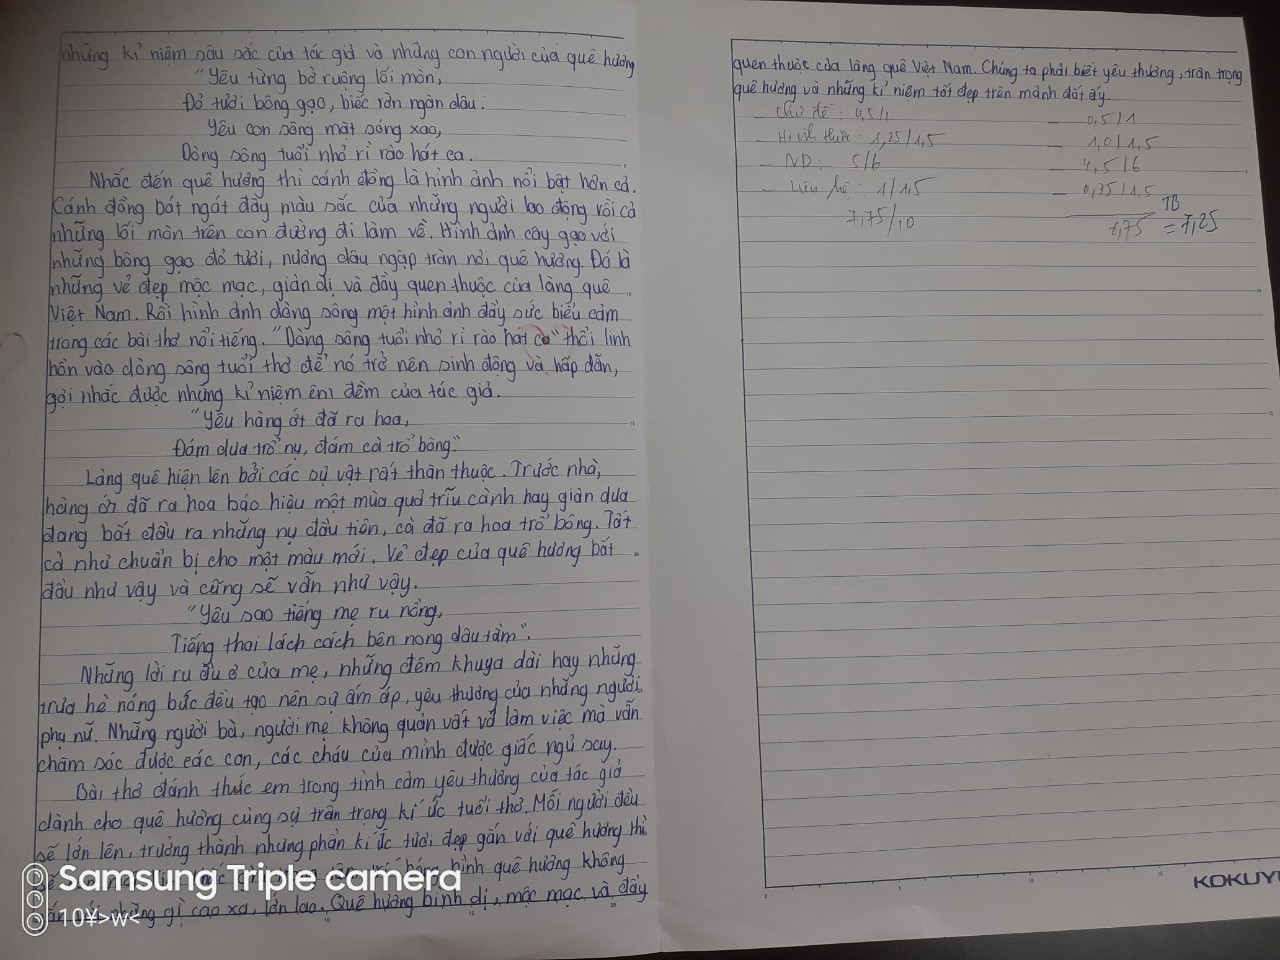 những kỉ niệm sâu sắc của tác giả và những con người của quê hương
"Yêu từng bờ ruộng lối mòn,
Đỏ tươi bông gạo, biếc rờn ngàn dâu.
Yêu con sông mặt sóng xao,
Dòng sông tuổi nhỏ rì rào hát ca.
Nhắc đến quê hương thì cánh đồng là hình ảnh nổi bật hơn cả.
Cánh đồng bát ngát đầy màu sắc của những người lao động rồi cả
những lối mòn trên con đường đi làm về. Hình ảnh cây gạo với
những bông gạo đỏ tươi, nương dâu ngập tràn nơi quê hương. Đó là
những vẻ đẹp mộc mạc, giản dị và đầy quen thuộc của làng quê
Việt Nam. Rồi hình ảnh dòng sông một hình ảnh đầy sức biểu cảm
trong các bài thơ nổi tiếng. "Dòng sông tuổi nhỏ rì rào hát ca" thổi linh
hồn vào dòng sông tuổi thơ để nó trở nên sinh động và hấp dẫn,
gợi nhắc được những kỉ niệm êm đềm của tác giả.
"Yêu hàng ớt đã ra hoa,
Đám dưa trổ nụ, đám cà trổ bông."
Làng quê hiện lên bởi các sự vật rất thân thuộc. Trước nhà,
hàng ớt đã ra hoa báo hiệu một mùa quả trĩu cành hay giàn dưa
đang bắt đầu ra những nụ đầu tiên, cà đã ra hoa trổ bông. Tất
cả như chuẩn bị cho một màu mới. Vẻ đẹp của quê hương bắt
đầu như vậy và cũng sẽ vẫn như vậy.
"Yêu sao tiếng mẹ ru nồng,
Tiếng thoi lách cách bên nong dâu tằm".
Những lời ru ầu ơ của mẹ, những đêm khuya dài hay những
trưa hè nóng bức đều tạo nên sự ấm áp, yêu thương của những người
phụ nữ. Những người bà, người mẹ không quản vất vả làm việc mà vẫn
chăm sóc được các con, các cháu của mình được giấc ngủ say.
Bài thơ đánh thức em trong tình cảm yêu thương của tác giả
dành cho quê hương cùng sự trân trọng kí ức tuổi thơ. Mỗi người đều
sẽ lớn lên, trưởng thành nhưng phần kí ức tươi đẹp gắn với quê hương thì
hình quê hương không
những gì cao xa, lớn lao. Quê hương bình dị, mộc mạc và đầy
Samsung Triple camera
10¥>w<
quen thuộc của làng quê Việt Nam. Chúng ta phải biết yêu thương, trân trọng
quê hương và những kỉ niệm tốt đẹp trên mảnh đất ấy.
Chủ đề: 0,5/1 – 0,5/1
Hình thức: 1,25/1,5 – 1,0/1,5
– ND: 5/6 – 4,5/6
– Liên hệ: 1/1,5 – 0,75/1,5
7,75/10 6,75 TB = 7,25
KOKUYO